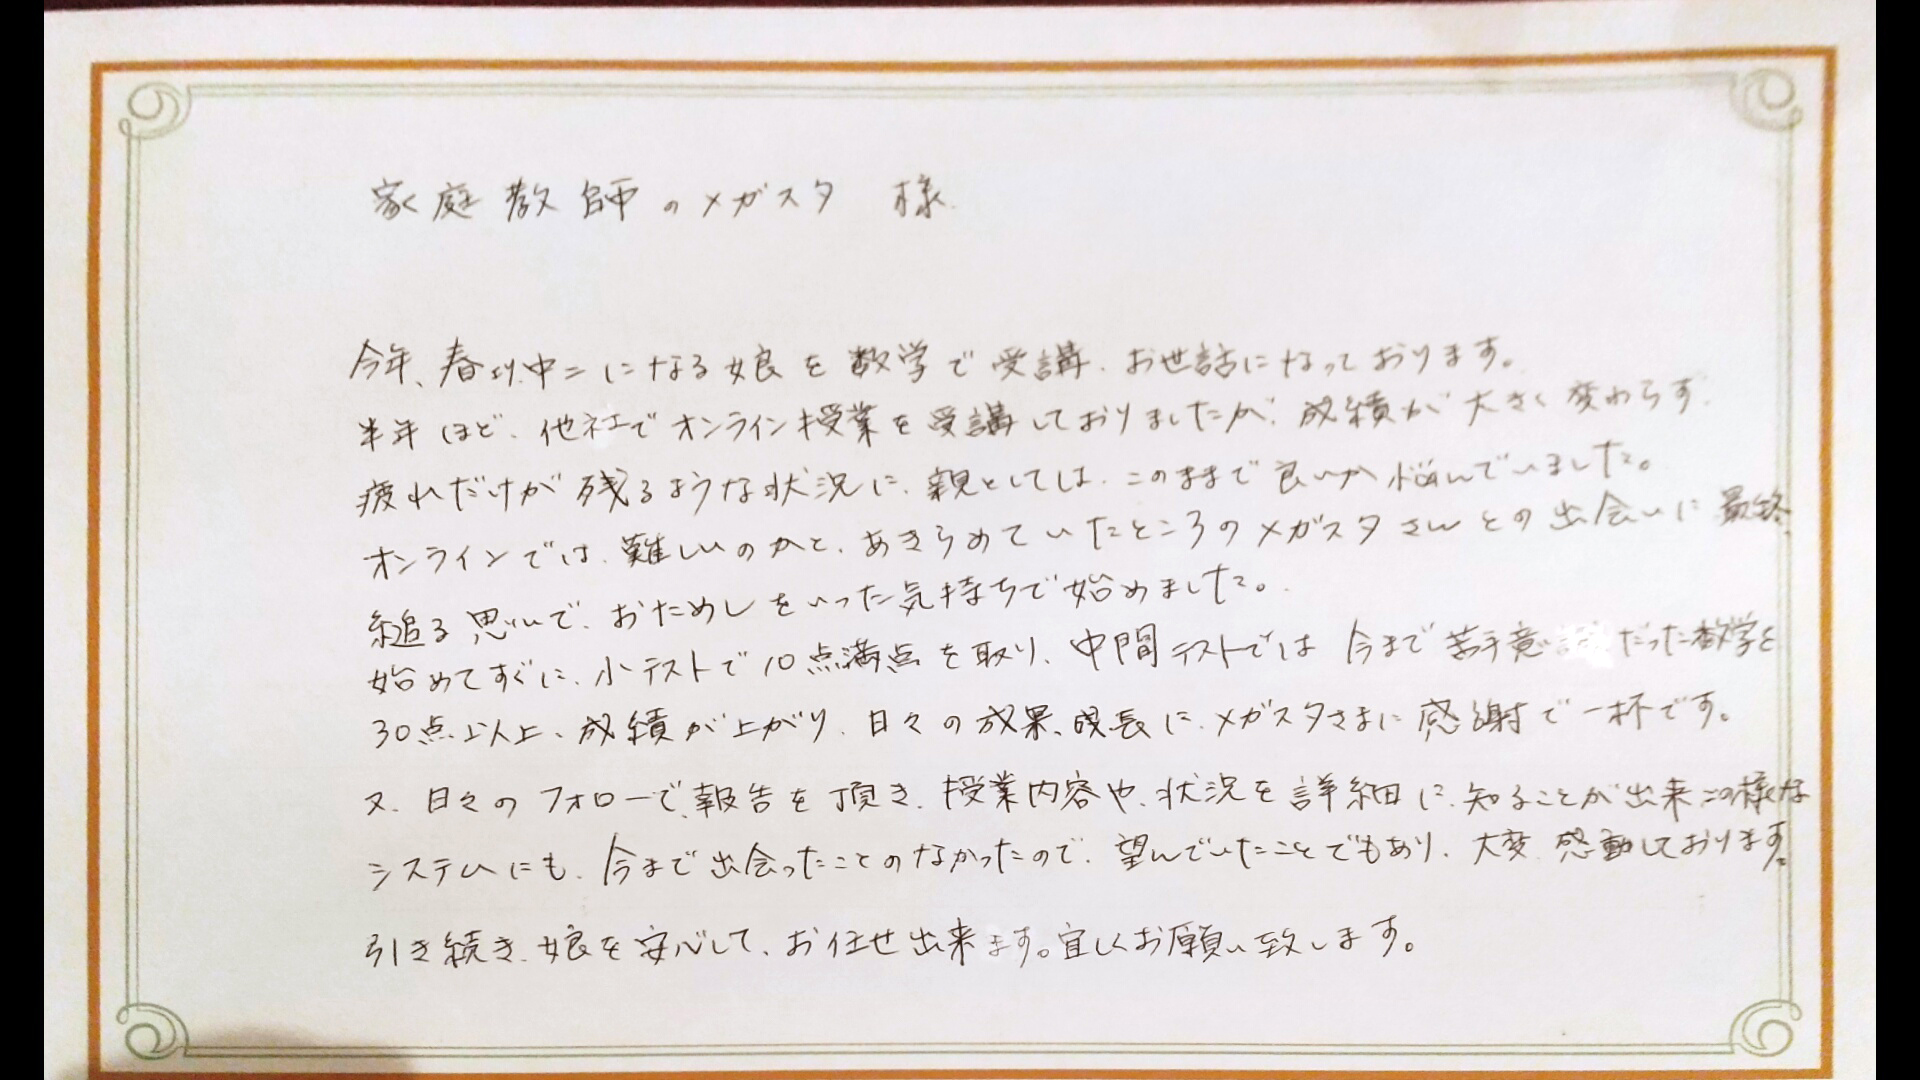 家庭教師のメガスタ 様
今年、春より中二になる娘を数学で受講、お世話になっております。
半年ほど、他社でオンライン授業を受講しておりましたが、成績が大きく変わらず、
疲れだけが残るような状況に、親としては、このままで良いか悩んでいました。
オンラインでは、難しいのかと、あきらめていたところのメガスタさんとの出会いに最終
縋る思いで、おためしをいった気持ちで始めました。
始めてすぐに、小テストで10点満点を取り、中間テストでは今まで苦手意識だった数学を
30点以上、成績が上がり、日々の成果、成長に、メガスタさまに感謝で一杯です。
又、日々のフォローで、報告を頂き、授業内容や、状況を詳細に、知ることが出来この様な
システムにも、今まで出会ったことのなかったので、望んでいたことでもあり、大変、感動しております。
引き続き、娘を安心して、お任せ出来ます。宜しくお願い致します。